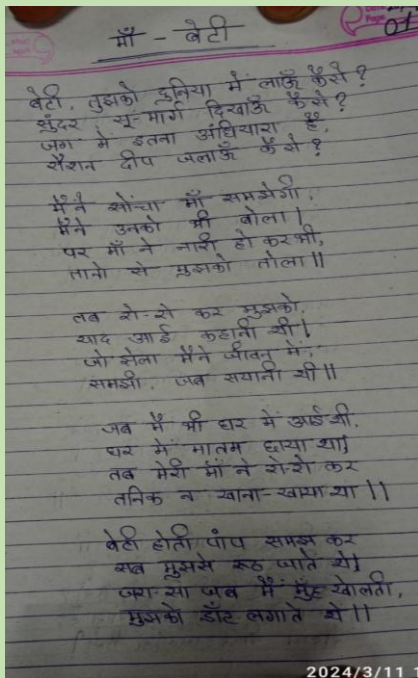 माँ - बेटी
Date
Page 01
बेटी, तुझको दुनिया में लाऊँ कैसे?
सुंदर सू-मार्ग दिखाऊँ कैसे?
जग में इतना अंधियारा है,
रौशन दीप जलाऊँ कैसे?
मैंने सोंचा माँ समझेगी,
मैंने उनको भी बोला।
पर माँ ने नारी हो कर भी,
तानो से मुझको तोला।।
तब रो-रो कर मुझको,
याद आई कहानी थी।
जो झेला मैंने जीवन में,
समझी, जब सयानी थी।।
जब मैं भी घर में आई थी,
घर में मातम छाया था।
तब मेरी माँ ने रो-रो कर
तनिक न खाना-खाया था।।
बेटी होती पाप समझ कर
सब मुझसे रूठ जाते थे।
जरा-सा जब मैं मुँह खोलती,
मुझको डाँट लगाते थे।।
2024/3/11 1